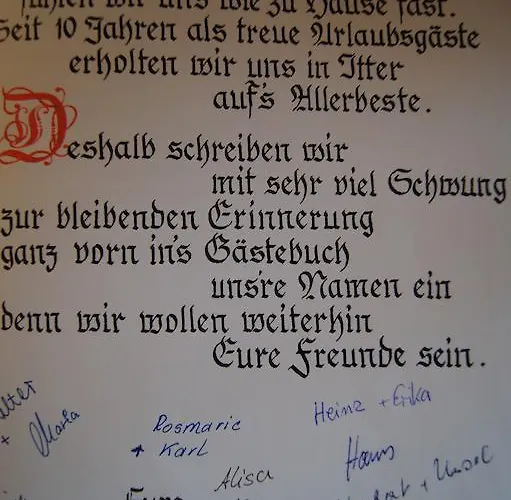 fühlen wir uns wie zu Hause fast.
Seit 10 Jahren als treue Urlaubsgäste
erholten wir uns in Itter
auf's Allerbeste.
Deshalb schreiben wir
mit sehr viel Schwung
zur bleibenden Erinnerung
ganz vorn in's Gästebuch
uns're Namen ein
denn wir wollen weiterhin
Eure Freunde sein.
Heinz + Erika
+ Maria
Rosmarie
+ Karl
Hans
Alisa